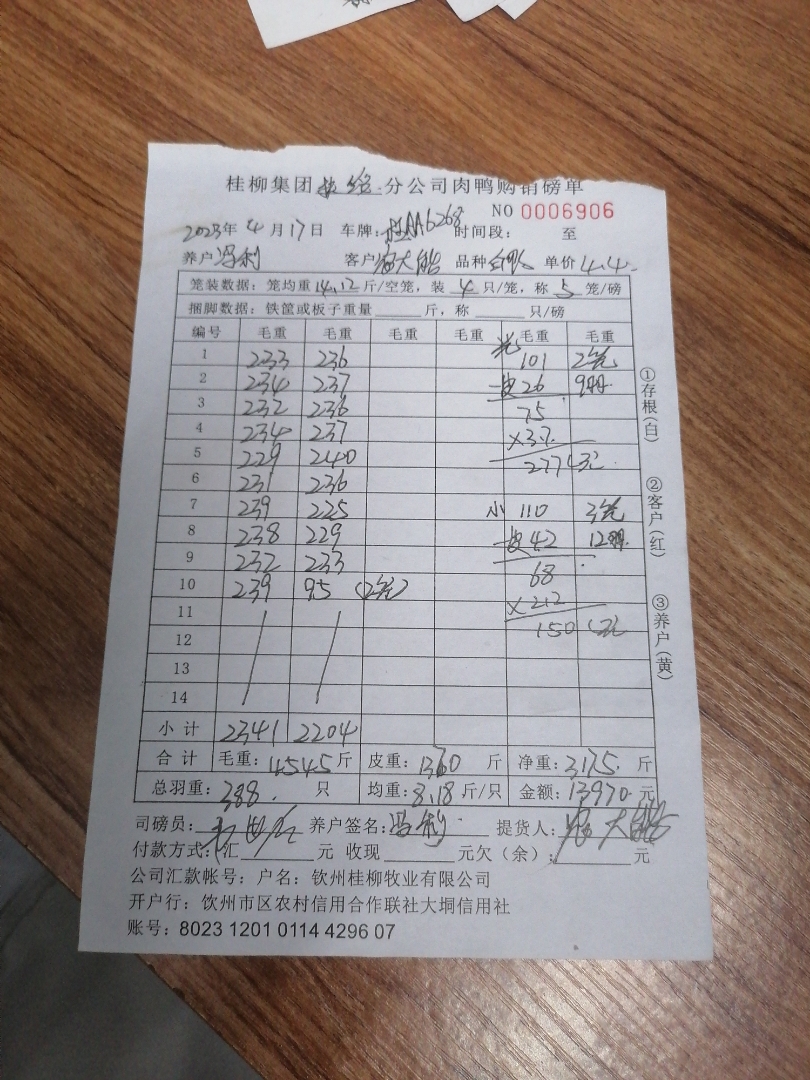 桂柳集团 分公司肉鸭购销磅单
NO 0006906
2023年 4 月 17 日 车牌: 桂AA6268 时间段: 至
养户 冯利 客户 大 品种 白 单价 4.4
笼装数据: 笼均重 14.12 斤/空笼, 装 4 只/笼, 称 5 笼/磅
捆脚数据: 铁筐或板子重量 斤, 称 只/磅
编号 毛重 毛重 毛重 毛重 毛重 毛重
1 233 236 101 2笼
2 234 237 皮26 9
3 232 236 75
4 234 237 ×3.7
5 229 240 277元
6 231 236
7 239 225 小 110 3笼
8 238 229 皮42 12
9 232 233 68
10 239 95 (2笼) ×2.2
11 150元
12
13
14
小计 2341 2204
合计 毛重: 4545 斤 皮重: 1360 斤 净重: 3175 斤
总羽重: 388 只 均重: 8.18 斤/只 金额: 13970 元
司磅员: 养户签名: 冯利 提货人: 大
付款方式: 汇 元 收现 元欠(余): 元
公司汇款帐号: 户名: 钦州桂柳牧业有限公司
开户行: 钦州市区农村信用合作联社大垌信用社
账号: 8023 1201 0114 4296 07
①存根(白)
②客户(红)
③养户(黄)